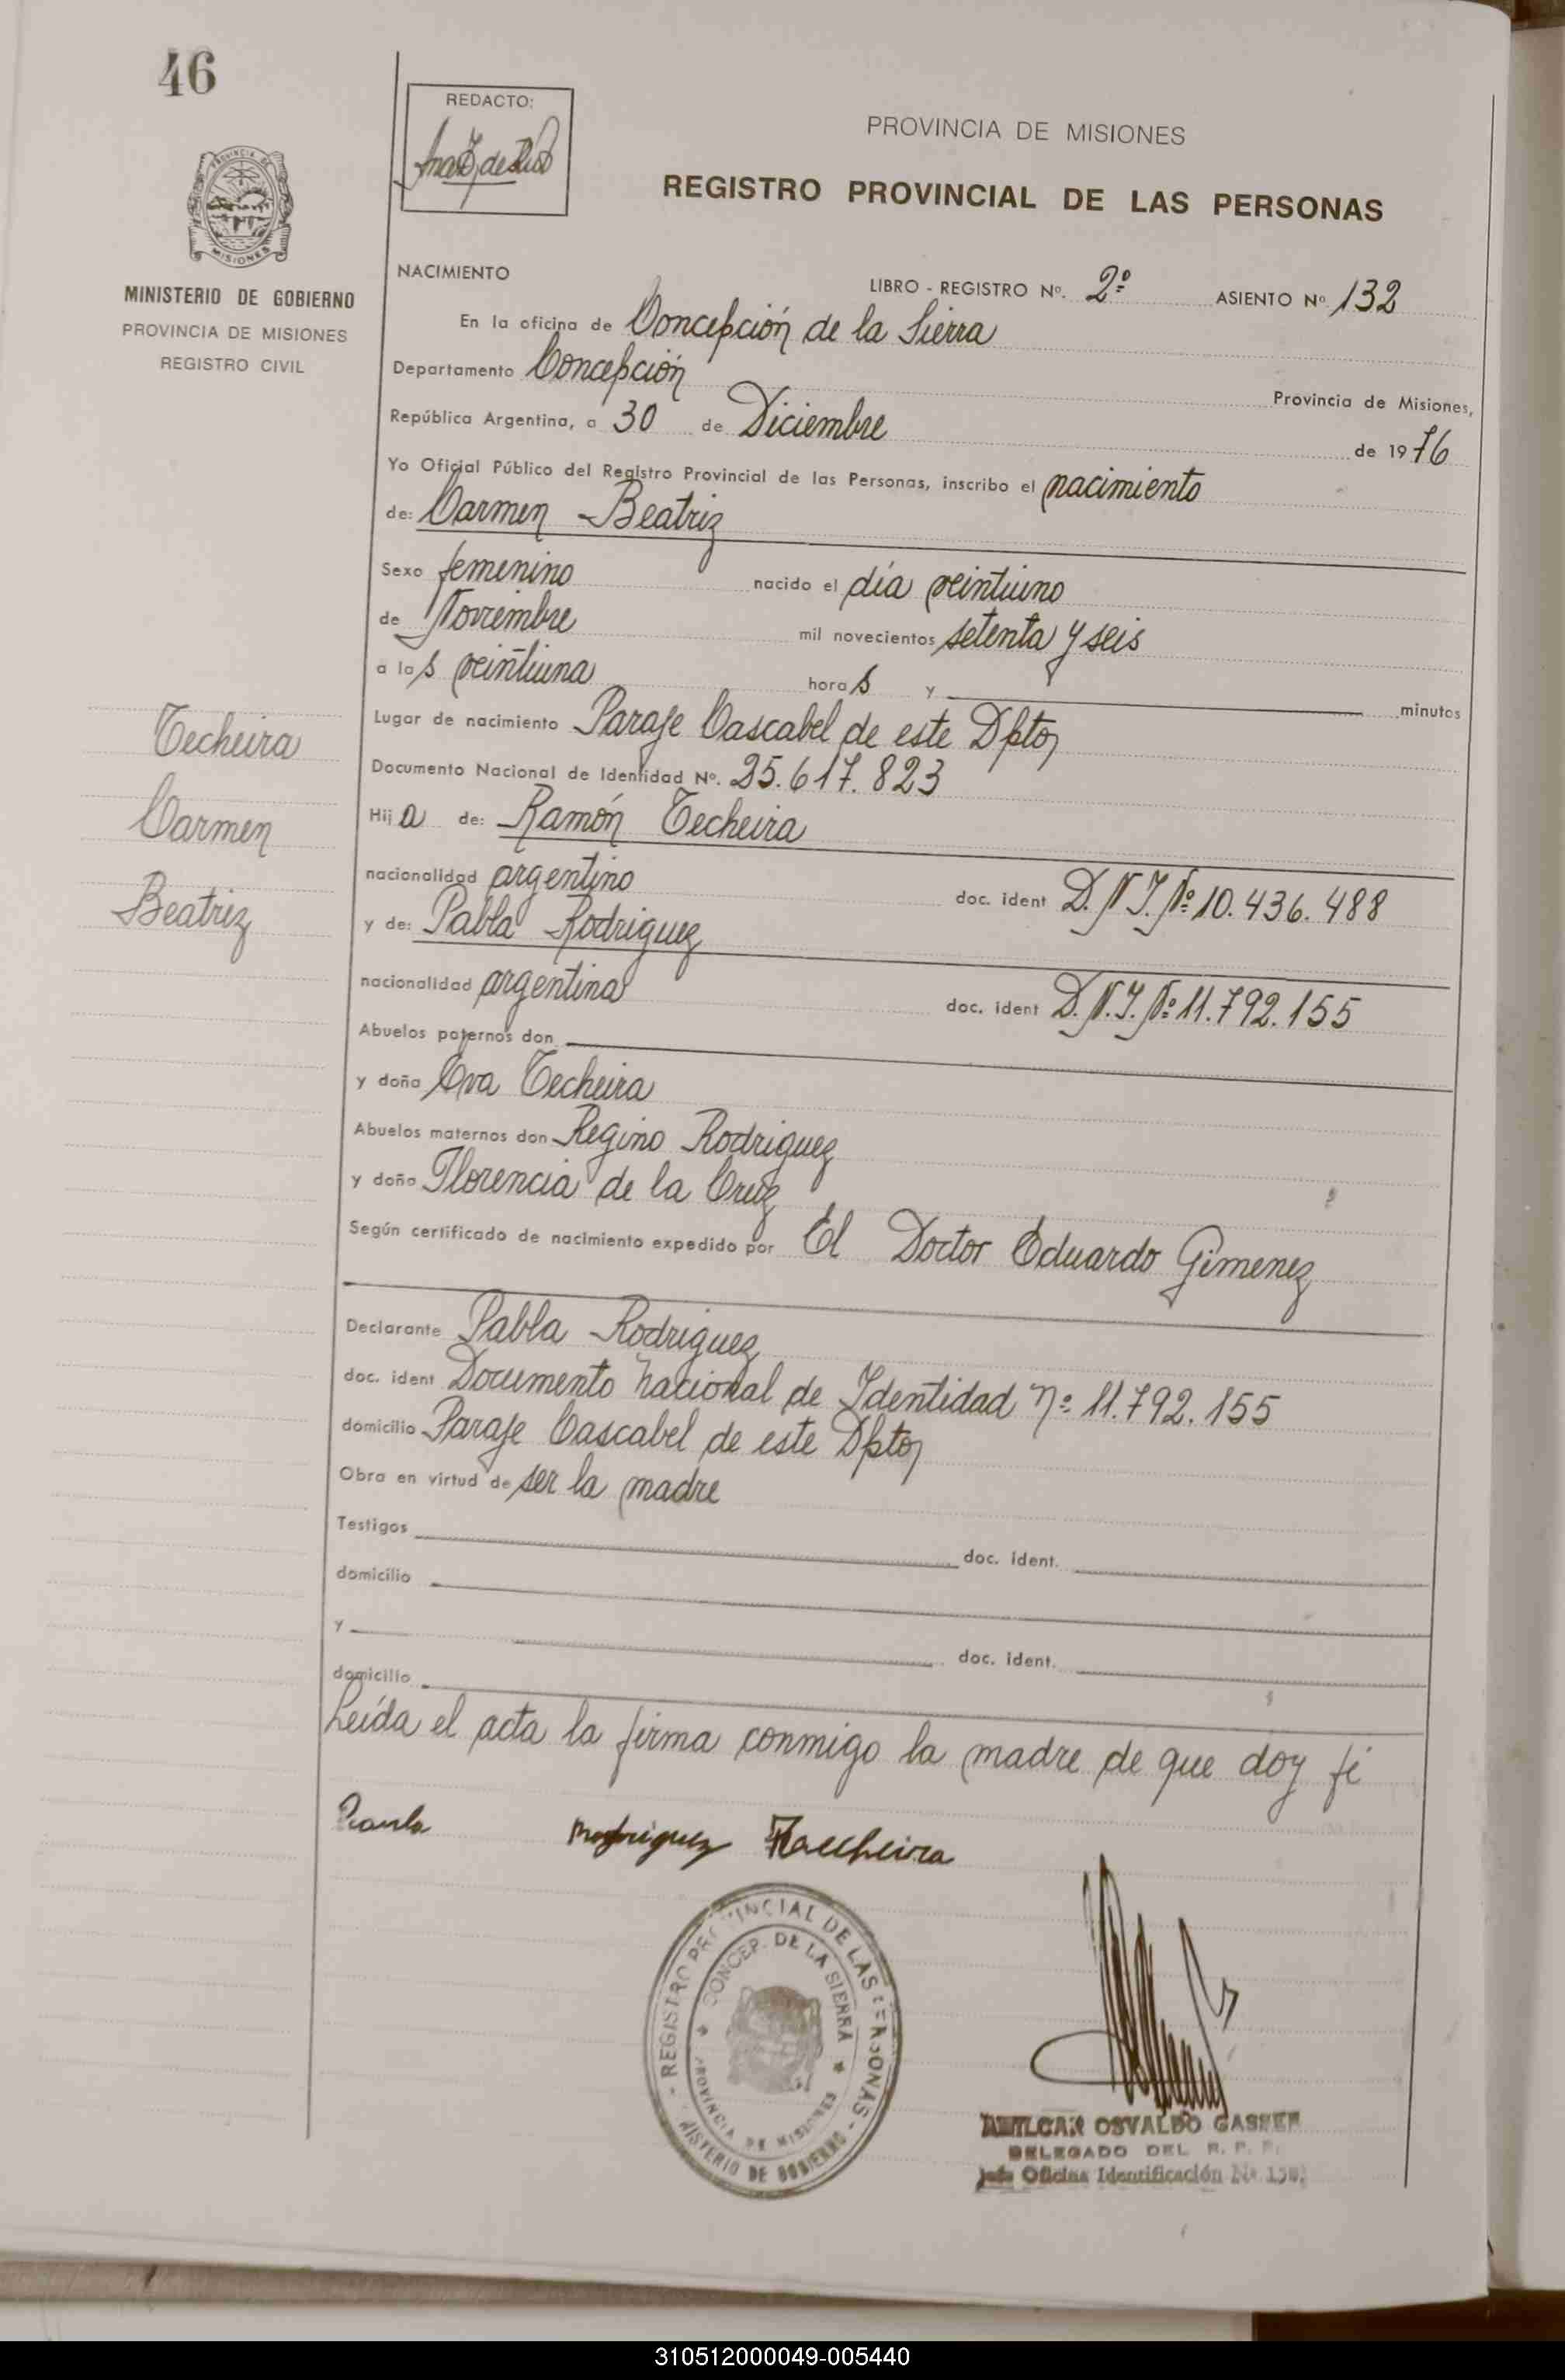 46
REDACTO:
PROVINCIA DE MISIONES
REGISTRO PROVINCIAL DE LAS PERSONAS
PROVINCIA DE
MISIONES
MINISTERIO DE GOBIERNO
PROVINCIA DE MISIONES
REGISTRO CIVIL
NACIMIENTO
LIBRO - REGISTRO Nº. 2º ASIENTO Nº 132
En la oficina de Concepción de la Sierra
Departamento Concepción Provincia de Misiones,
República Argentina, a 30 de Diciembre de 1976
Yo Oficial Público del Registro Provincial de las Personas, inscribo el nacimiento
de: Carmen Beatriz
Sexo femenino nacido el día veintiuno
de Noviembre mil novecientos setenta y seis
a las veintiuna horas y minutos
Lugar de nacimiento Paraje Cascabel de este Dpto
Documento Nacional de Identidad Nº. 25.617.823
Hija de: Ramón Techeira
nacionalidad argentino doc. ident D.N.I. Nº 10.436.488
y de: Pabla Rodriguez
nacionalidad argentina doc. ident D.N.I. Nº 11.792.155
Abuelos paternos don
y doña Eva Techeira
Abuelos maternos don Regino Rodriguez
y doña Florencia de la Cruz
Según certificado de nacimiento expedido por El Doctor Eduardo Gimenez
Declarante Pabla Rodriguez
doc. ident Documento nacional de Identidad nº 11.792.155
domicilio Paraje Cascabel de este Dpto
Obra en virtud de ser la madre
Testigos doc. ident.
domicilio
y doc. ident.
domicilio
Leída el acta la firma conmigo la madre de que doy fé
Techeira
Carmen
Beatriz
Rodriguez
REGISTRO PROVINCIAL DE LAS PERSONAS
CONCEP. DE LA SIERRA
PROVINCIA DE MISIONES
MINISTERIO DE GOBIERNO
AMILCAR OSVALDO
DELEGADO DEL R. P. P.
Jefe Oficina Identificación Nº
310512000049-005440